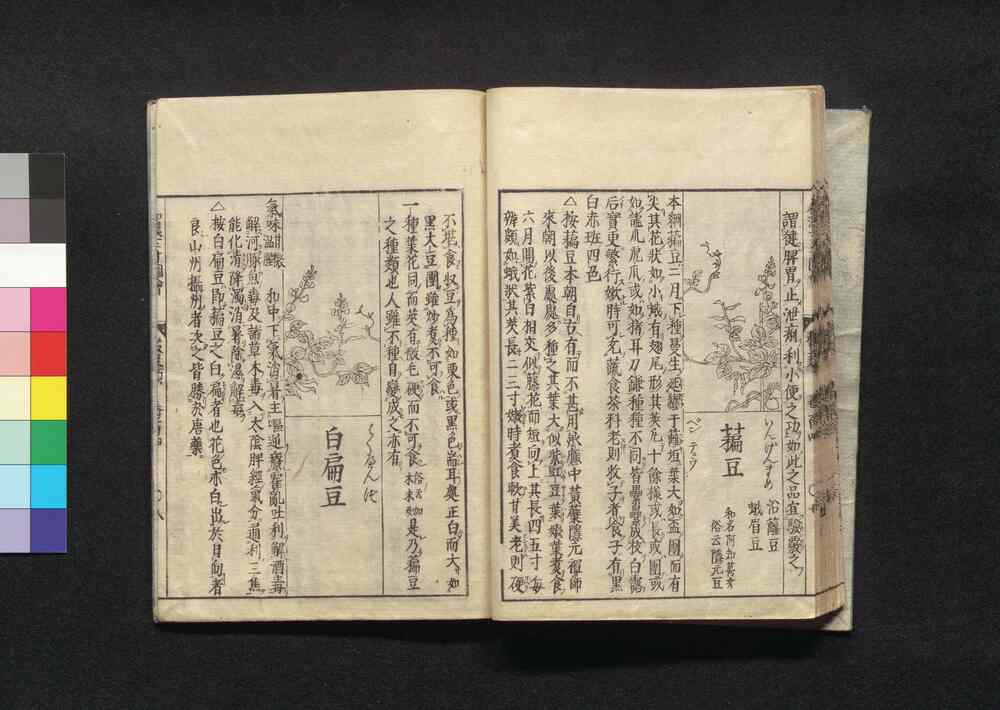 謂健脾胃止泄痢利小便之功如此之品宜
藊豆
いんげんまめ
ヘン テウ
沿籬豆
蛾眉豆
俗云隱元豆
本綱藊豆二月下種蔓生延纏于籬垣葉大如盃團而有
尖其花狀如小蛾有翅尾形其莢凡十餘樣或長或團或
如龍爪虎爪或如猪耳刀鎌種種不同皆纍纍成枝白露
后實更繁行嫩時可充蔬食茶料老則收子煮食子有黑
白赤班四色
△按藊豆本朝自古有而不甚用承應中黃蘗隱元禪師
來朝以後處處多種之其葉大似葉豇豆葉嫩葉煮食
六月開花紫白相交似藤花而短向上其長四五寸每
辨類如蛾狀其莢長二三寸嫩時煮食軟甘美老則硬
不堪食収豆為種如栗色或黑色耑耳處正白而大如
黑大豆團雖炒煮不可食
一種葉花同而莢有微毛硬而不可食是乃藊豆
之種類也人雖不種自變成之亦有
白扁豆
氣味甘微溫
和中下氣消暑主嘔逆療霍亂吐利解酒毒
解河豚魚毒及諸草木毒入太陰脾經氣分通利三焦
能化清降濁消暑除濕解毒
△按白扁豆即藊豆之白扁者也花色亦白出於日向者
良山州攝州者次之皆勝於唐藥